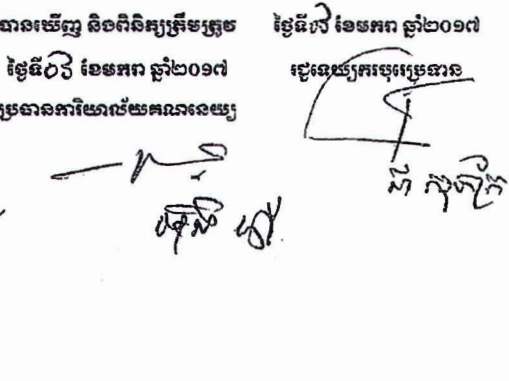 បានឃើញ និងពិនិត្យត្រឹមត្រូវ
ថ្ងៃទី០៦ ខែមករា ឆ្នាំ២០១៧
ប្រធានការិយាល័យគណនេយ្យ
ថ្ងៃទី ខែមករា ឆ្នាំ២០១៧
រជ្ជទេយ្យករបុរេប្រទាន